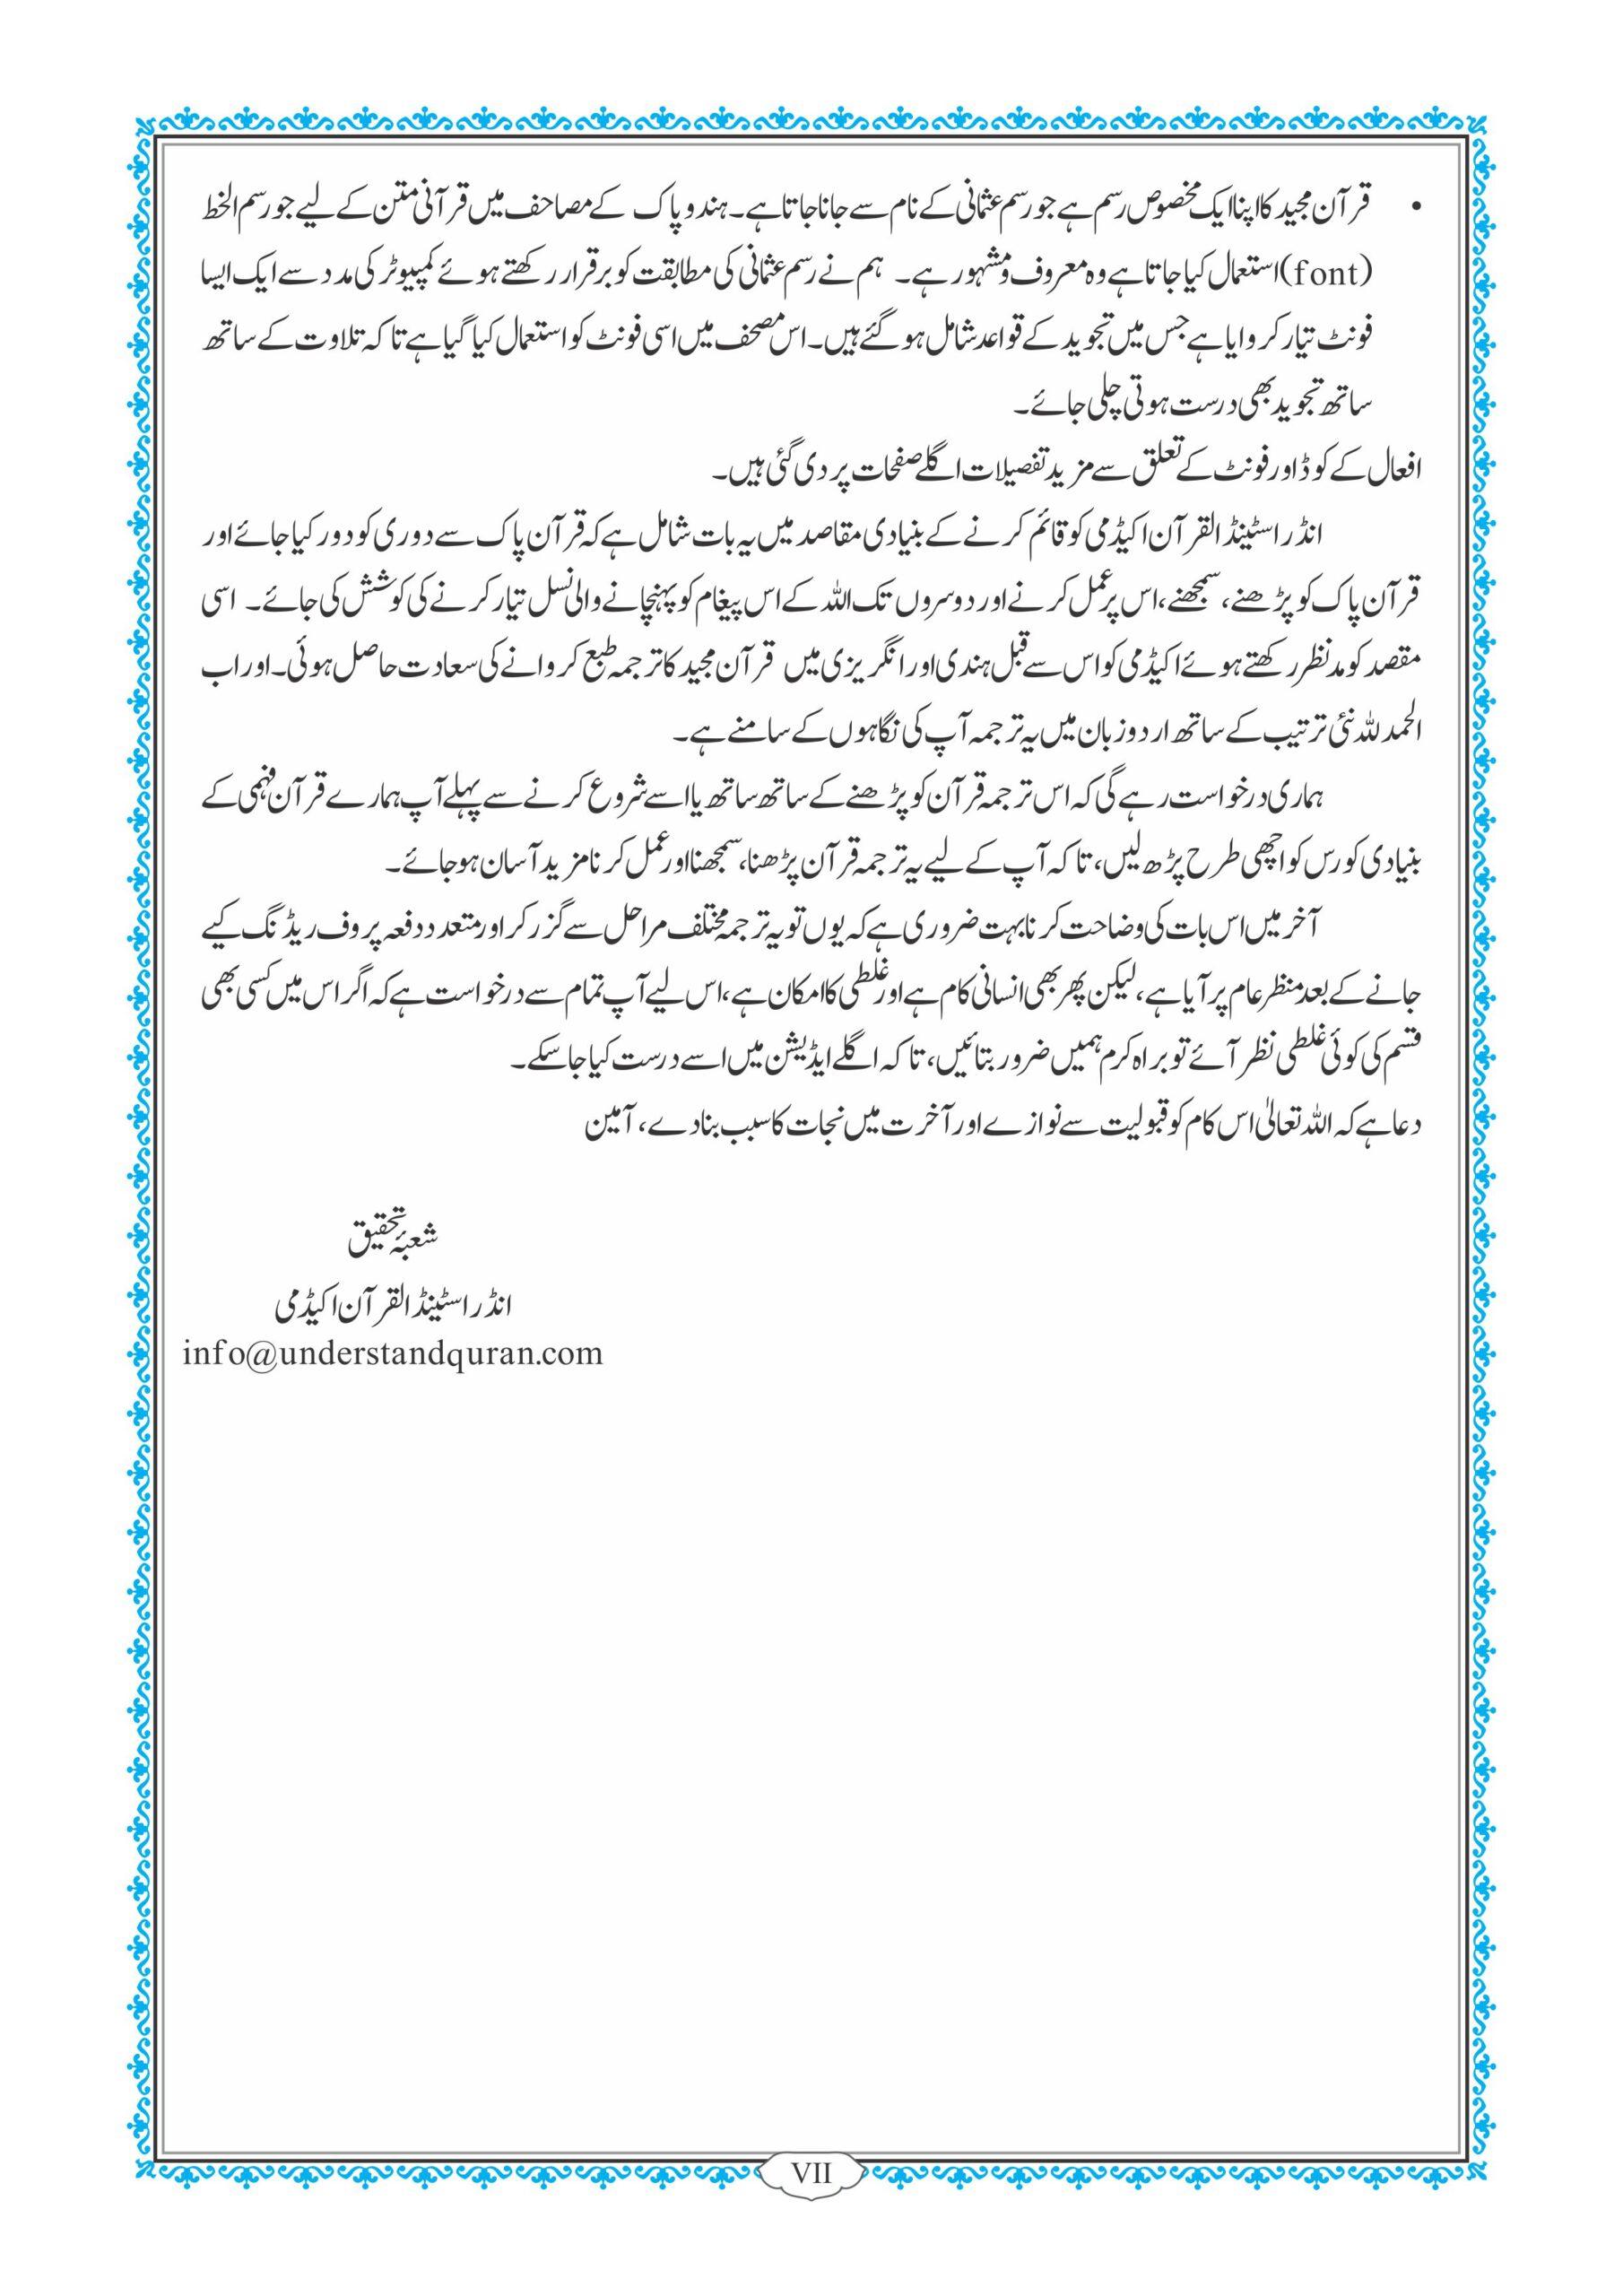 • قرآن مجید کا اپنا ایک مخصوص رسم ہے جو رسم عثمانی کے نام سے جانا جاتا ہے۔ ہند و پاک کے مصاحف میں قرآنی متن کے لیے جو رسم الخط
(font) استعمال کیا جاتا ہے وہ معروف و مشہور ہے۔ ہم نے رسم عثمانی کی مطابقت کو برقرار رکھتے ہوئے کمپیوٹر کی مدد سے ایک ایسا
فونٹ تیار کروایا ہے جس میں تجوید کے قواعد شامل ہو گئے ہیں۔ اس مصحف میں اسی فونٹ کو استعمال کیا گیا ہے تاکہ تلاوت کے ساتھ
ساتھ تجوید بھی درست ہوتی چلی جائے۔
افعال کے کوڈ اور فونٹ کے تعلق سے مزید تفصیلات اگلے صفحات پر دی گئی ہیں۔
انڈراسٹینڈ القرآن اکیڈمی کو قائم کرنے کے بنیادی مقاصد میں یہ بات شامل ہے کہ قرآن پاک سے دوری کو دور کیا جائے اور
قرآن پاک کو پڑھنے، سمجھنے، اس پر عمل کرنے اور دوسروں تک اللہ کے اس پیغام کو پہنچانے والی نسل تیار کرنے کی کوشش کی جائے۔ اسی
مقصد کو مدنظر رکھتے ہوئے اکیڈمی کو اس سے قبل ہندی اور انگریزی میں قرآن مجید کا ترجمہ طبع کروانے کی سعادت حاصل ہوئی۔ اور اب
الحمد للہ نئی ترتیب کے ساتھ اردو زبان میں یہ ترجمہ آپ کی نگاہوں کے سامنے ہے۔
ہماری درخواست رہے گی کہ اس ترجمہ قرآن کو پڑھنے کے ساتھ ساتھ یا اسے شروع کرنے سے پہلے آپ ہمارے قرآن فہمی کے
بنیادی کورس کو اچھی طرح پڑھ لیں، تاکہ آپ کے لیے یہ ترجمہ قرآن پڑھنا، سمجھنا اور عمل کرنا مزید آسان ہو جائے۔
آخر میں اس بات کی وضاحت کرنا بہت ضروری ہے کہ یوں تو یہ ترجمہ مختلف مراحل سے گزر کر اور متعدد دفعہ پروف ریڈنگ کیے
جانے کے بعد منظر عام پر آیا ہے، لیکن پھر بھی انسانی کام ہے اور غلطی کا امکان ہے، اس لیے آپ تمام سے درخواست ہے کہ اگر اس میں کسی بھی
قسم کی کوئی غلطی نظر آئے تو براہ کرم ہمیں ضرور بتائیں، تاکہ اگلے ایڈیشن میں اسے درست کیا جا سکے۔
دعا ہے کہ اللہ تعالیٰ اس کام کو قبولیت سے نوازے اور آخرت میں نجات کا سبب بنا دے، آمین
شعبۂ تحقیق
انڈراسٹینڈ القرآن اکیڈمی
info@understandquran.com
VII